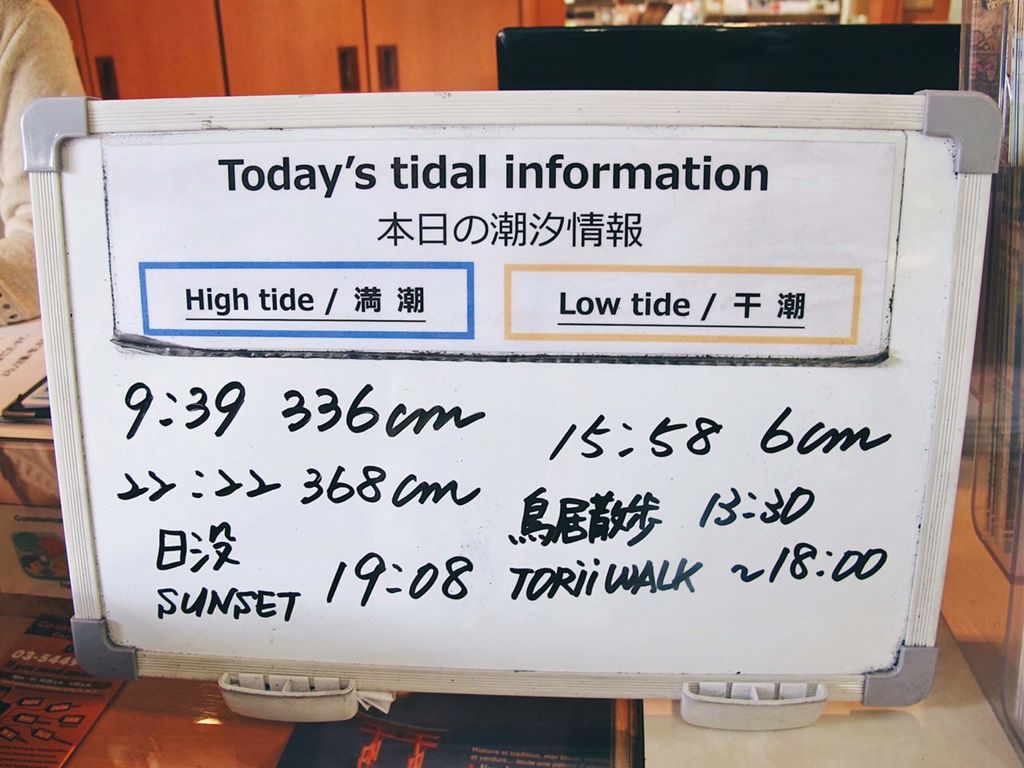 Today's tidal information
本日の潮汐情報
High tide / 満 潮
Low tide / 干 潮
9:39 336cm
22:22 368cm
日没
SUNSET 19:08
15:58 6cm
鳥居散歩 13:30
TORii WALK ~18:00
03-5449
Histoire et tradition, mer